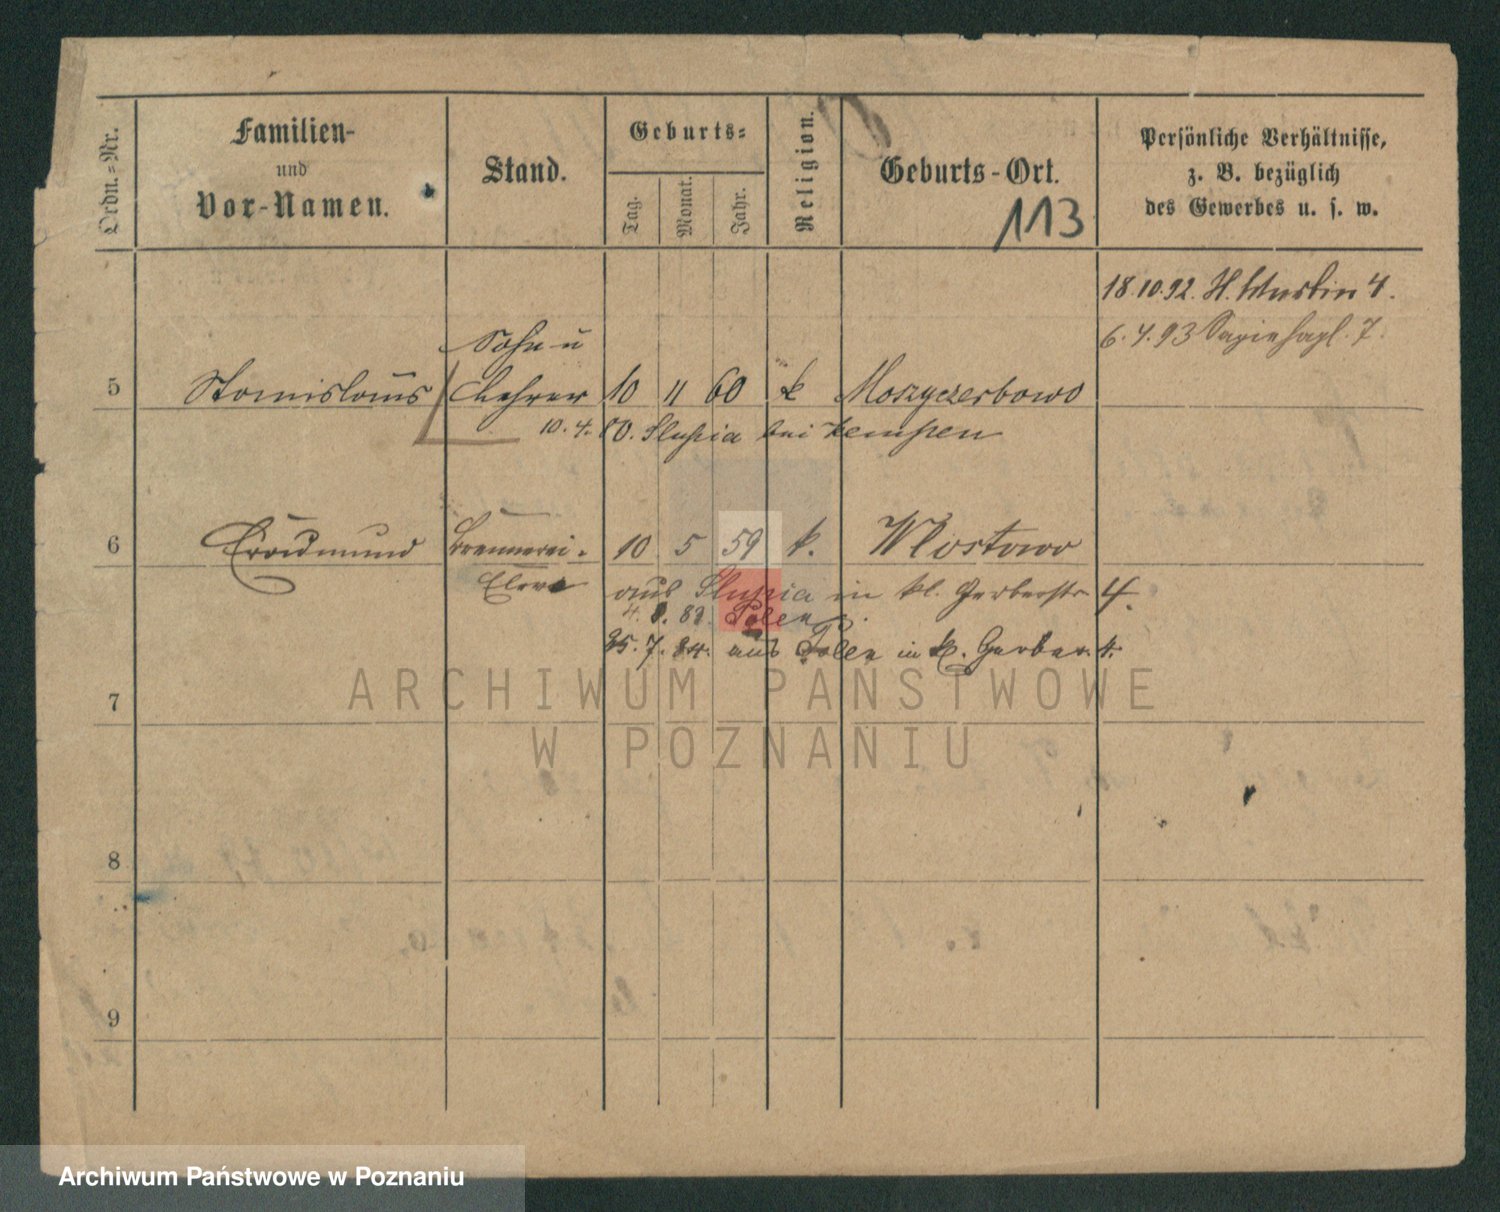 Ordn.-Nr.
Familien-
und
Vor-Namen.
Stand.
Geburts-
Tag.
Monat.
Jahr.
Religion.
Geburts-Ort.
113
Persönliche Verhältnisse,
z. B. bezüglich
des Gewerbes u. s. w.
18.10.92. H. 4.
6.4.93 Sapiehapl. 7.
Sohn u
5 Stanislaus Lehrer 10 11 60 k
10.4. 80. Slupia bei Kempen
6 Erdmund Brennerei- 10 5 59 k. Wlostowo
Eleve
aus Slupia in kl. Gerberstr. 4.
4. 8. 82. Polen
25.7.84. aus Polen in kl. Gerber. 4.
7
8
9
ARCHIWUM PAŃSTWOWE
W POZNANIU
Archiwum Państwowe w Poznaniu